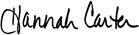 Hannah Carter